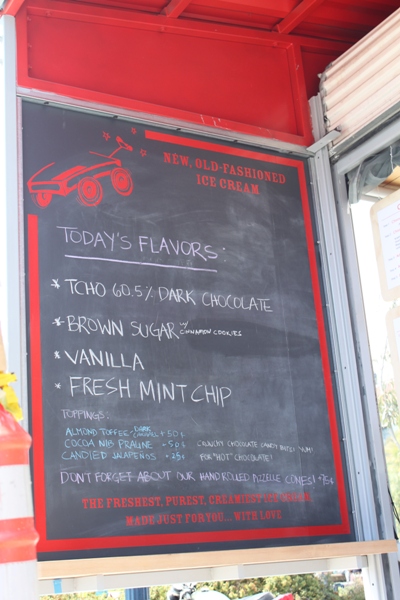 NEW, OLD-FASHIONED
ICE CREAM
TODAY'S FLAVORS:
* TCHO 60.5% DARK CHOCOLATE
* BROWN SUGAR W/ CINNAMON COOKIES
* VANILLA
* FRESH MINT CHIP
TOPPINGS:
ALMOND TOFFEE - DARK CARAMEL + 50¢
COCOA NIB PRALINE - 50¢
CANDIED JALAPEÑOS + 25¢
CRUNCHY CHOCOLATE CANDY BITS YUM!
FOR "HOT" CHOCOLATE!
DON'T FORGET ABOUT OUR HANDROLLED PIZZELLE CONES! +75¢
THE FRESHEST, PUREST, CREAMIEST ICE CREAM
MADE JUST FOR YOU... WITH LOVE